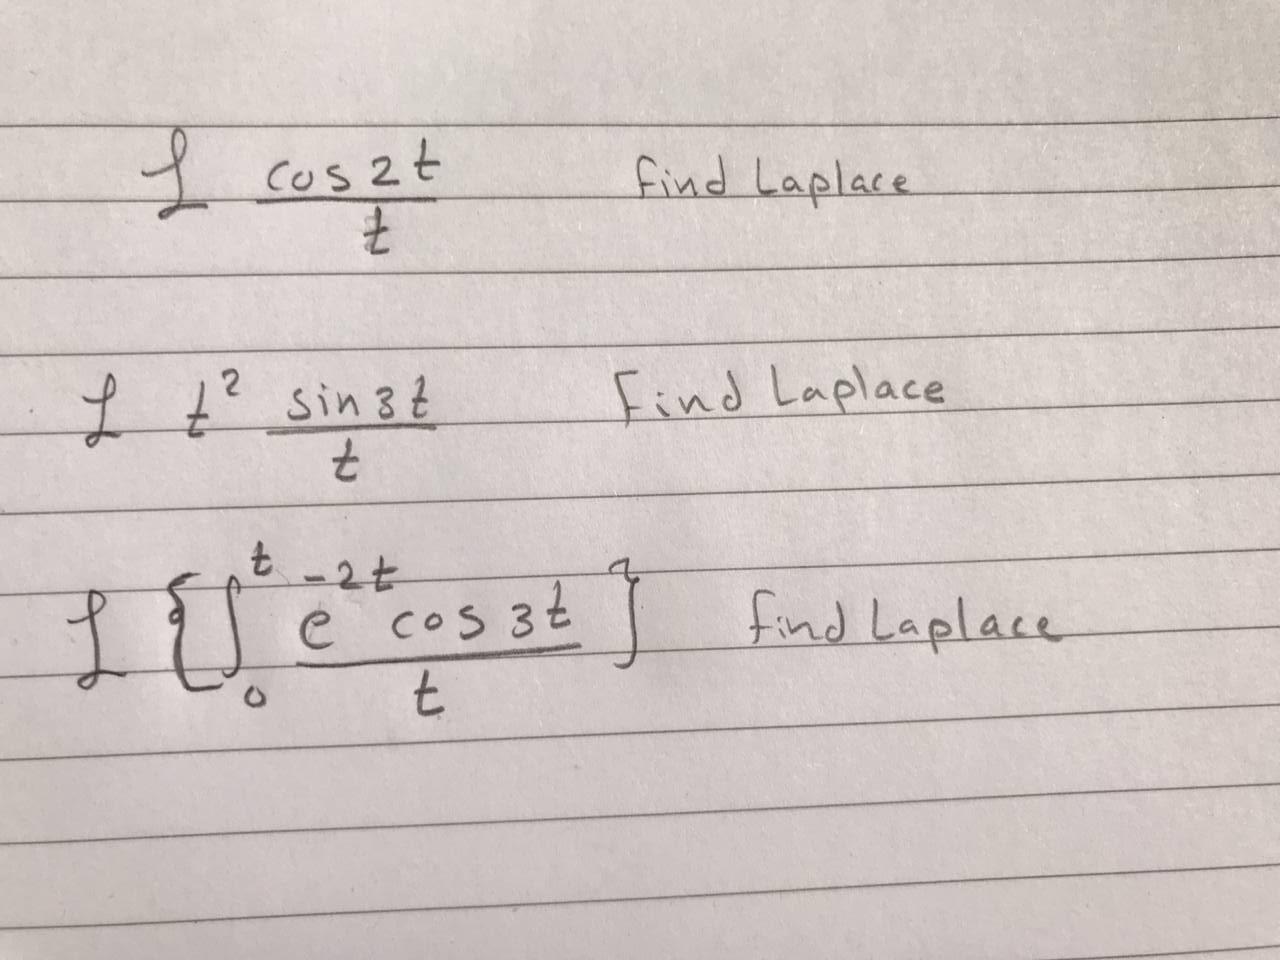 ℒ cos2t/t find Laplace
ℒ t² sin3t/t Find Laplace
ℒ {∫₀ᵗ e⁻²ᵗ cos 3t/t} find Laplace